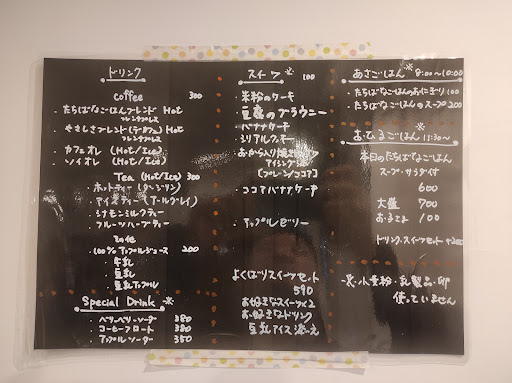 ドリンク
coffee 300
・たちばなごはんブレンド Hot
フレンチプレス
・やさしさブレンド(デカフェ) Hot
フレンチプレス
・カフェオレ (Hot/Ice)
・ソイオレ (Hot/Ice)
Tea (Hot/Ice) 300
・ホットティー(ダージリン)
・アイスティー(アールグレイ)
・シナモンミルクティー
・フルーツハーブティー
その他
・100%アップルジュース 200
・牛乳
・豆乳
・豆乳アップル
Special Drink ※
・ベリーベリーソーダ 380
・コーヒーフロート 380
・アップルソーダー 350
スイーツ ※ 100
・米粉のケーキ
・豆腐のブラウニー
・バナナケーキ
・シリアルクッキー
・おから入り焼き
アイシング
[プレーン/ココア]
・ココアバナナケーキ
・アップルゼリー
よくばりスイーツセット
590
お好きなスイーツ×2
お好きなドリンク
豆乳アイス添え
あさごはん ※ 8:00〜10:00
・たちばなごはんのおにぎり 100
・たちばなごはんのスープ 200
おひるごはん ※ 11:30〜
本日のたちばなごはん
スープ・サラダ付
600
大盛 700
おこさま 100
ドリンク、スイーツセット +200
※・小麦粉・乳製品・卵
使っていません